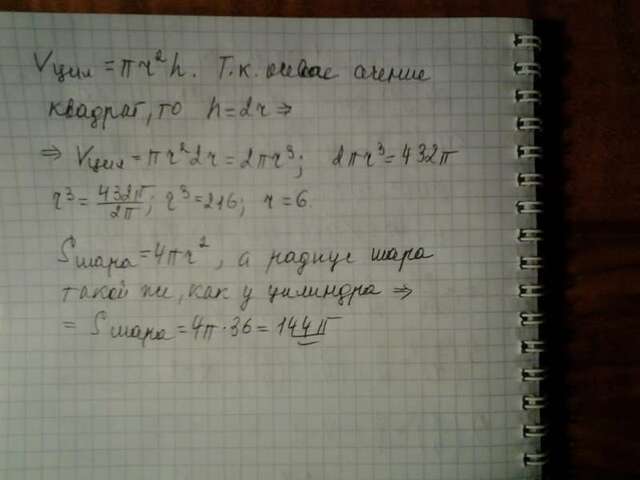 Vцил = πr²h. Т.к. осевое сечение
квадрат, то h=2r ⇒
⇒ Vцил = πr²2r = 2πr³; 2πr³ = 432π
r³ = 432π/2π; r³ = 216; r = 6.
Sшара = 4πr², а радиус шара
такой же, как у цилиндра ⇒
= Sшара = 4π·36 = 144π